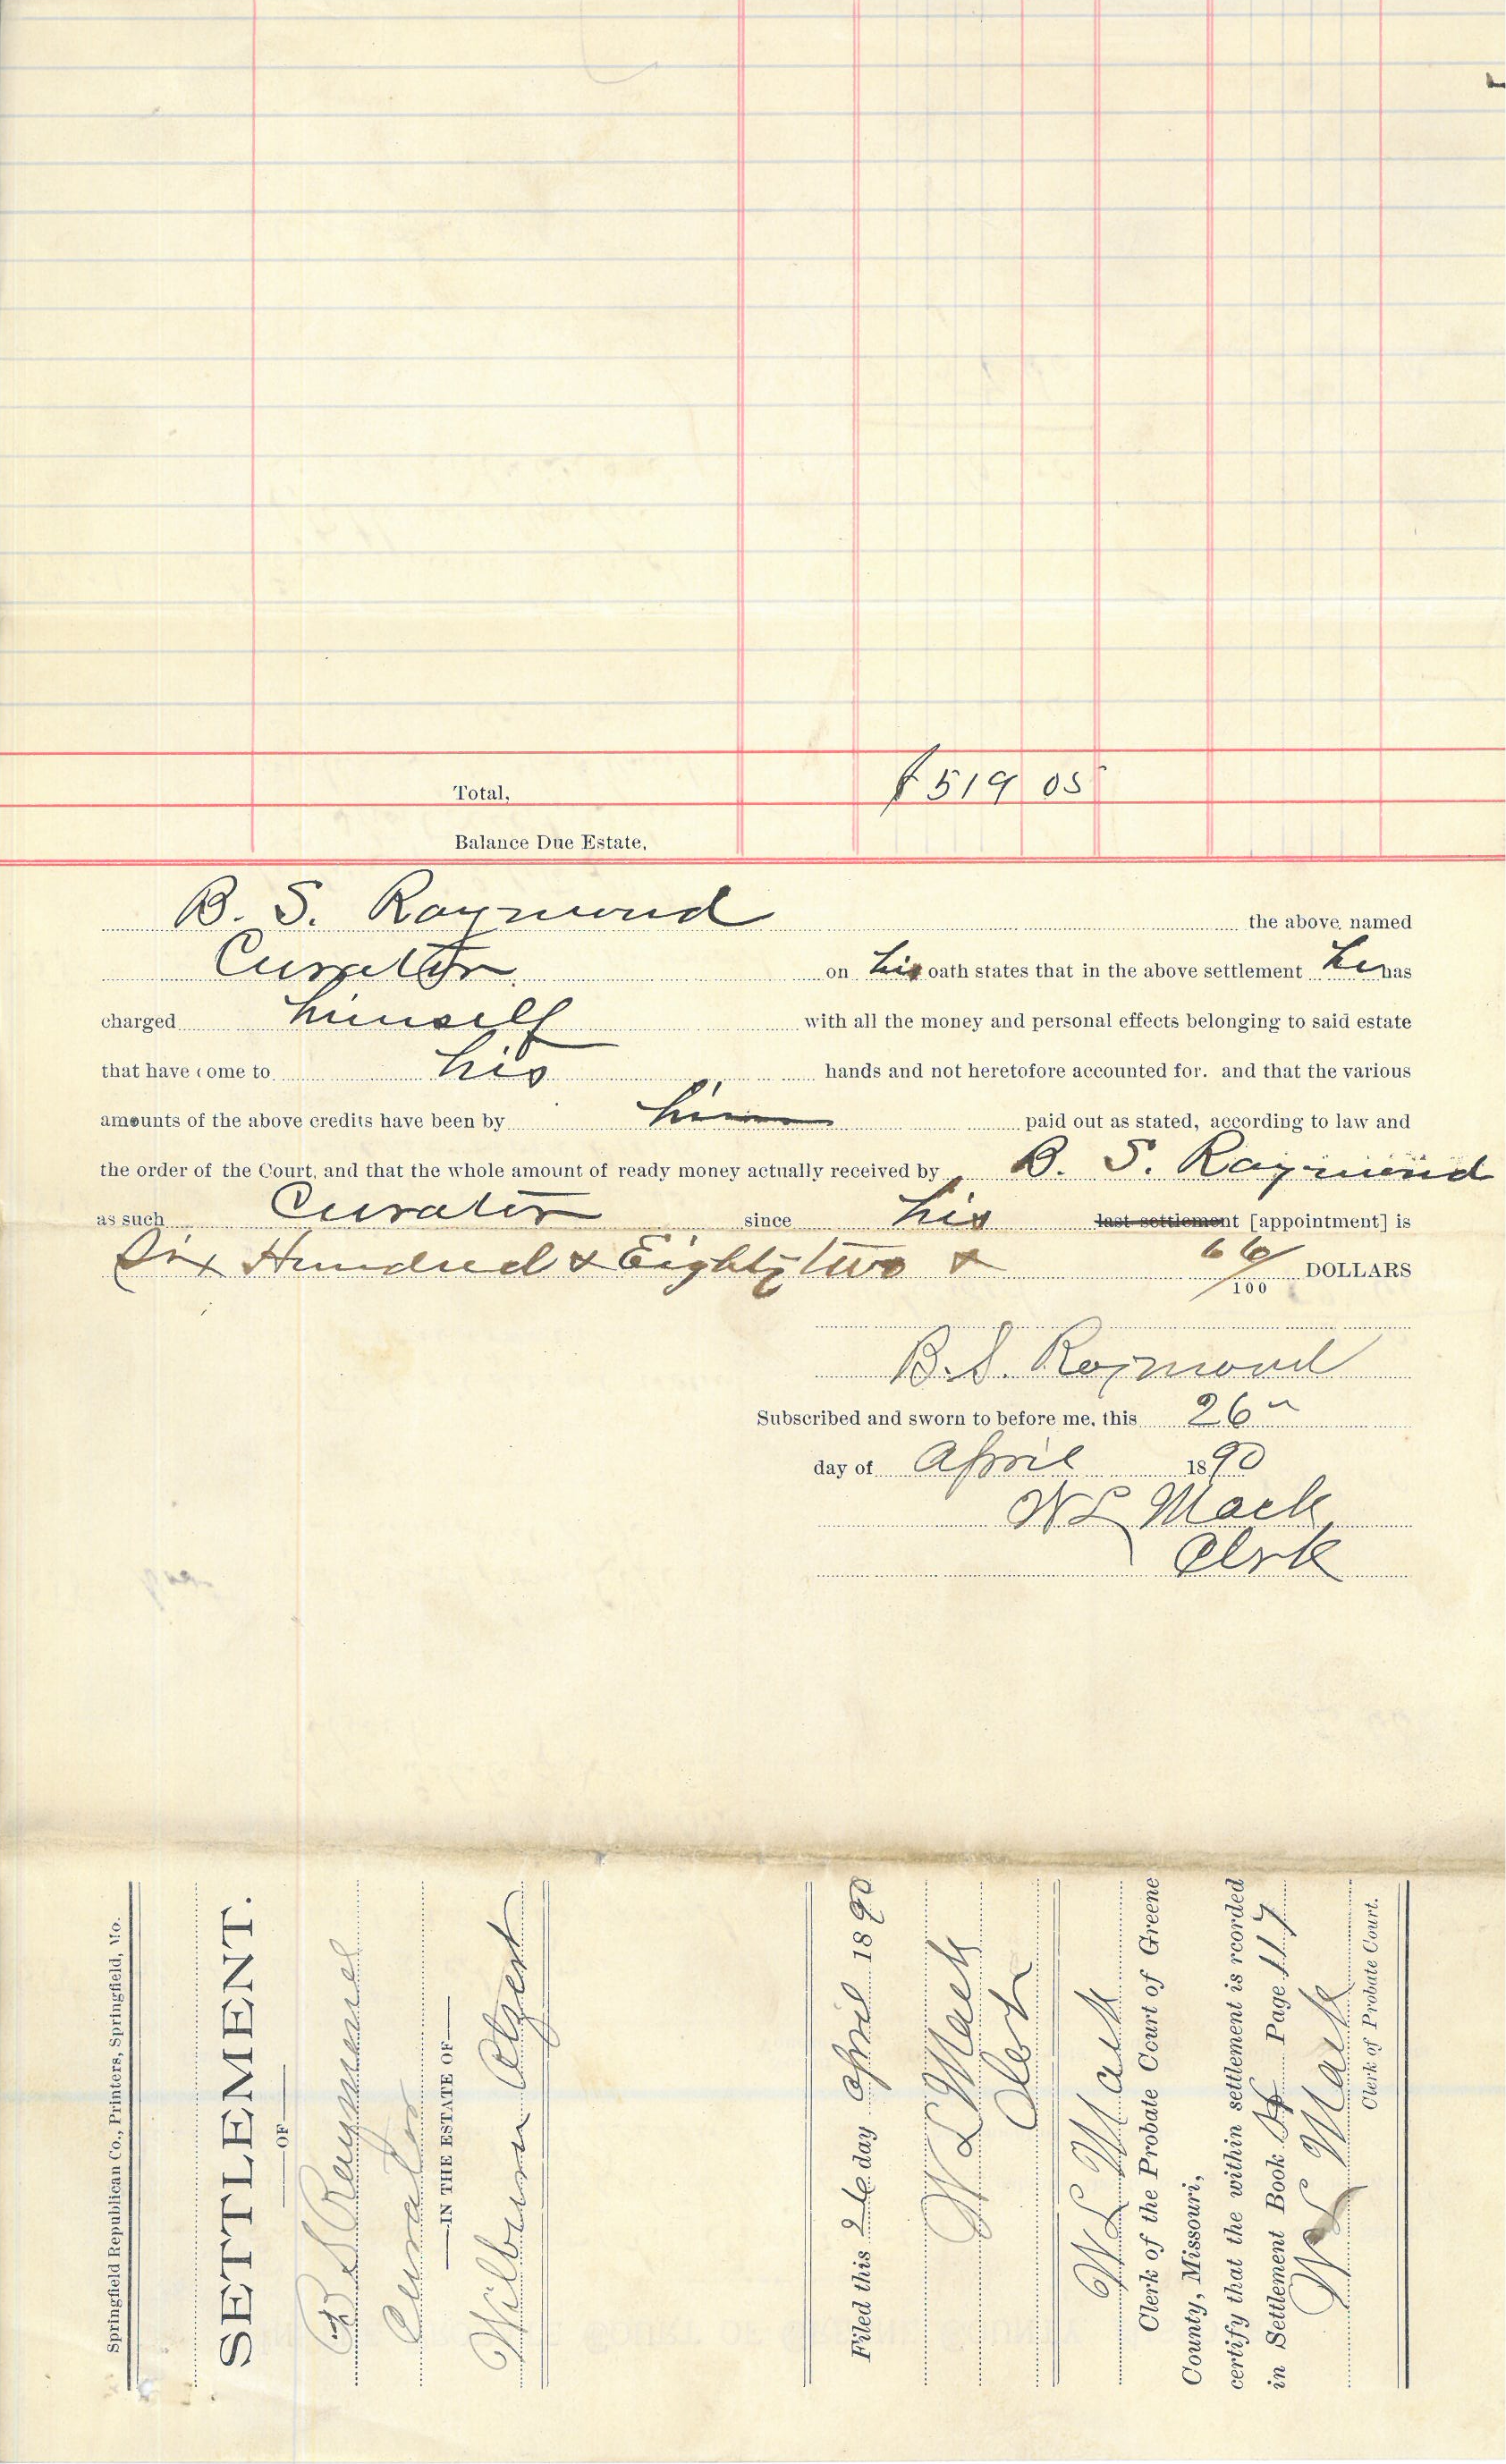 Total, $519 05
Balance Due Estate,
B. S. Raymond the above named
Curator on his oath states that in the above settlement he has
charged himself with all the money and personal effects belonging to said estate
that have come to his hands and not heretofore accounted for. and that the various
amounts of the above credits have been by him paid out as stated, according to law and
the order of the Court, and that the whole amount of ready money actually received by B. S. Raymond
as such Curator since his last settlement [appointment] is
Six Hundred & Eighty two & 66/100 DOLLARS
B. S. Raymond
Subscribed and sworn to before me, this 26
day of April 1890
W L Mack
Clerk
Springfield Republican Co., Printers, Springfield, Mo.
SETTLEMENT.
OF
B S Raymond
Curator
IN THE ESTATE OF
Wilburn
Filed this 26 day April 1890
W L Mack
Clerk
W L Mack
Clerk of the Probate Court of Greene
County, Missouri,
certify that the within settlement is rcorded
in Settlement Book Page 117
W L Mack
Clerk of Probate Court.